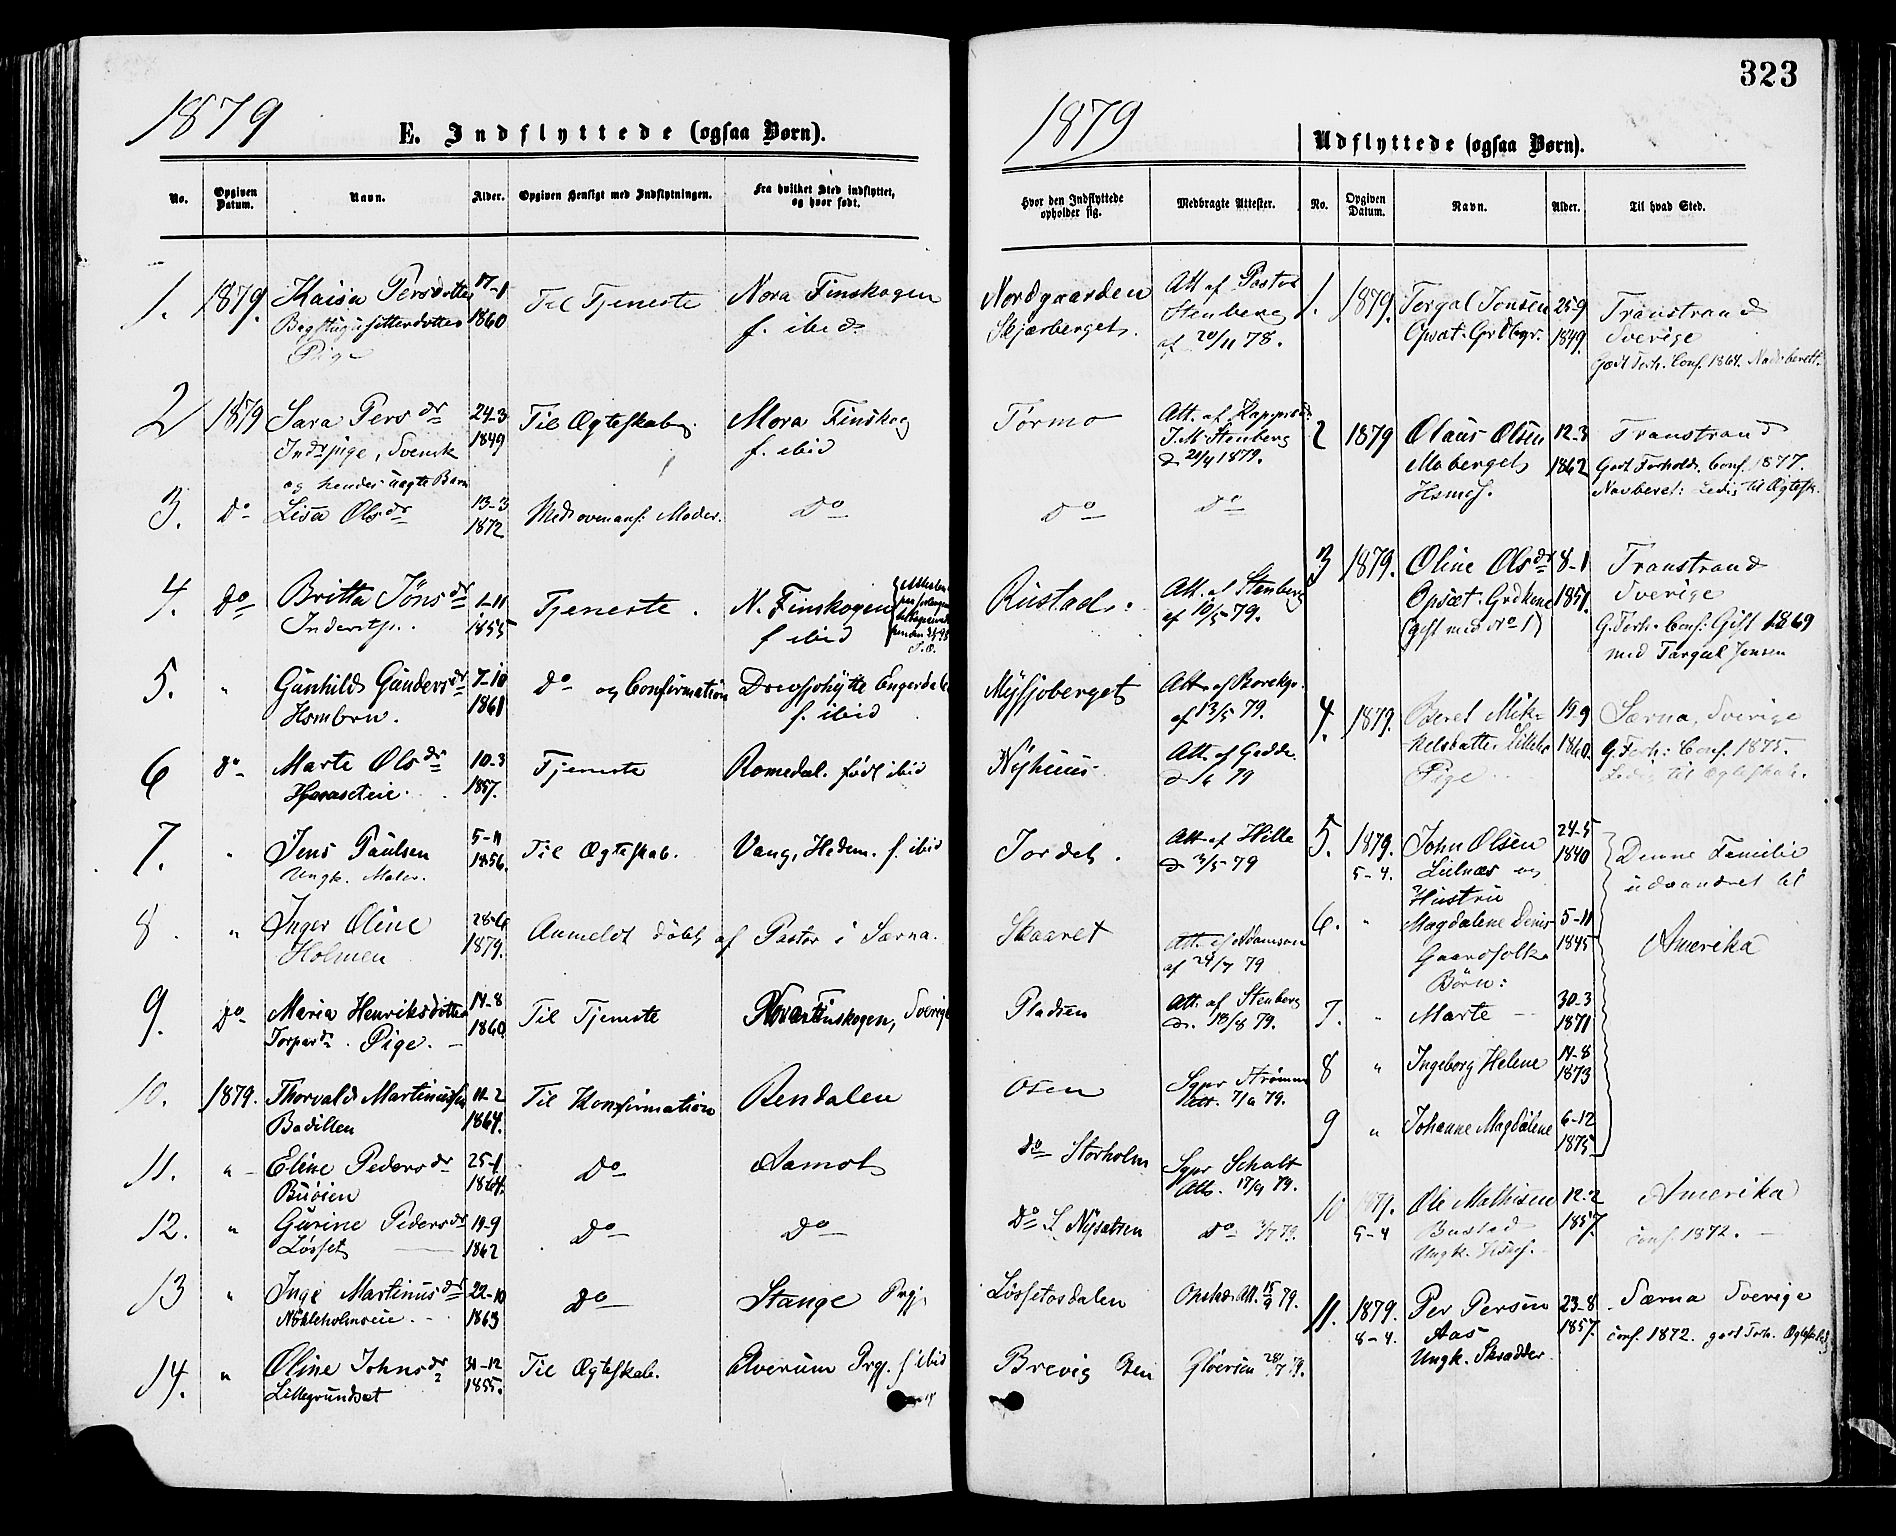 323
1879
E. Indflyttede (ogsaa Børn).
No. Opgiven Datum. Navn. Alder. Opgiven Hensigt med Indflytningen. Fra hvilket Sted indflyttet, og hvor født.
1. 1879. Kaisa Persdotter 17-1 1860 Til Tjeneste Nora Finskogen f. ibid
Pige
2 1879 Sara Persdr 24-3 1849 Til Ægteskab. Mora Finskog f. ibid
Indrpige, Svensk
og hendes uægte Barn
3. Do Lisa Olsdr 13-3 1872 Med ovenanf: Moder. Do
4. Do Britta Jönsdr 1-11 1855 Tjeneste. N. Finskogen f ibid
Inderstp.
5. " Gunhild Gundersdr 7-10 1861 Do og Confirmation Drevsjohytte Engerdalen f. ibid
Hsmbrn.
6 Do Marte Olsdr 10-3 1857. Tjeneste Romedal. født ibid
7. " Jens Paulsen 5-11 1856. Til Ægteskab. Vang, Hedem. f. ibid
Ungk. Maler.
8. " Inger Oline 28-6 1879. Anmeldt døbt af Pastor i Særna.
Holmen
9. Do Maria Henriksdotter 14-8 1860. Til Tjeneste Nora Finskogen, Sverige
Torpardr. Pige.
10. 1879. Thorvald Martinussen 11-2 1864. Til Konfirmation Rendalen
Badilten
11. " Eline Pedersdr 25-1 1864. Do Aamot
Buøien
12. " Gurine Pedersdr 19-9 1862 Do Do
Løsset
13 " Inge Martinusdr 22-10 1863 Do Stange Prgj.
14. " Oline Johnsdr 31-12 1855. Til Ægteskab. Elverum Prgj. f ibid
Lillegrundset
1879
Hvor den Indflyttede opholder sig. Medbragte Attester.
Nordgaarden Skjærberget. Att af Pastor Stenberg af 20/11 78.
Tørmo Att. af J. M. Stenberg d 21/4 1879.
Do Do
Rustad. Att. af Stenberg af 10/5 79.
Mysjoberget Att. af af 13/5 79.
Nyhuus. Att. af Gedde
Jordet. Att af Hille d 3/5 79
Skaaret Att. af Adamson af 24/7 79
Pladsen Att. af Stenberg d. 18/8 79.
Osen Sgpr Strømme Att. 7/6 79.
Do Storholm Sgpr Schult Att. 17/9 79.
Do L. Nysætren Do 3/7 79.
Løssetosdalen Att. 15/9 79.
Brevig Osen Gløersen 28/7 79.
Udflyttede (ogsaa Børn).
No. Opgiven Datum. Navn. Alder. Til hvad Sted.
1. 1879. Torgal Jonsen 25-9 1849. Transtrand Sverige
Opsæt. Grdbgr. Godt Forh. Conf. 1864. Nadv.berett.
2 1879 Olaus Olsen 12-3 1862 Transtrand
Moberget Godt Forhold. Conf. 1877.
Hsmsf. Navberet: Ledig til Ægtesk.
3 1879. Oline Olsdr 8-1 1851. Transtrand Sverige
Opsæt. Grdkone G. Forh. Conf: Gift 1869
(gift med No 1) med Torgal Jonsen
4. 1879. Beret Mikkelsdatter 19-9 1860. Særna, Sverige
Pige G. Forh: Conf. 1875.
Ledig til Ægteskab.
5. 1879. 5-4. John Olsen 24-5 1840 Denne Familie udvandret til Amerika
Lilnæs og
Hustru
6. " Magdalene 5-11 1845
Gaardfolk
Børn:
7. " Marte 30-3 1871
8 " Ingeborg Helene 14-8 1873
9 " Johanne Magdalene 6-12 1875
10 1879. 5-4 Ole Mathisen 12-2 1857. Amerika
conf. 1872.
11. 1879. 8-4. Per Persen 23-8 1857. Særna Sverige
Aas conf. 1872. godt Forh.
Ungk. Skrædder